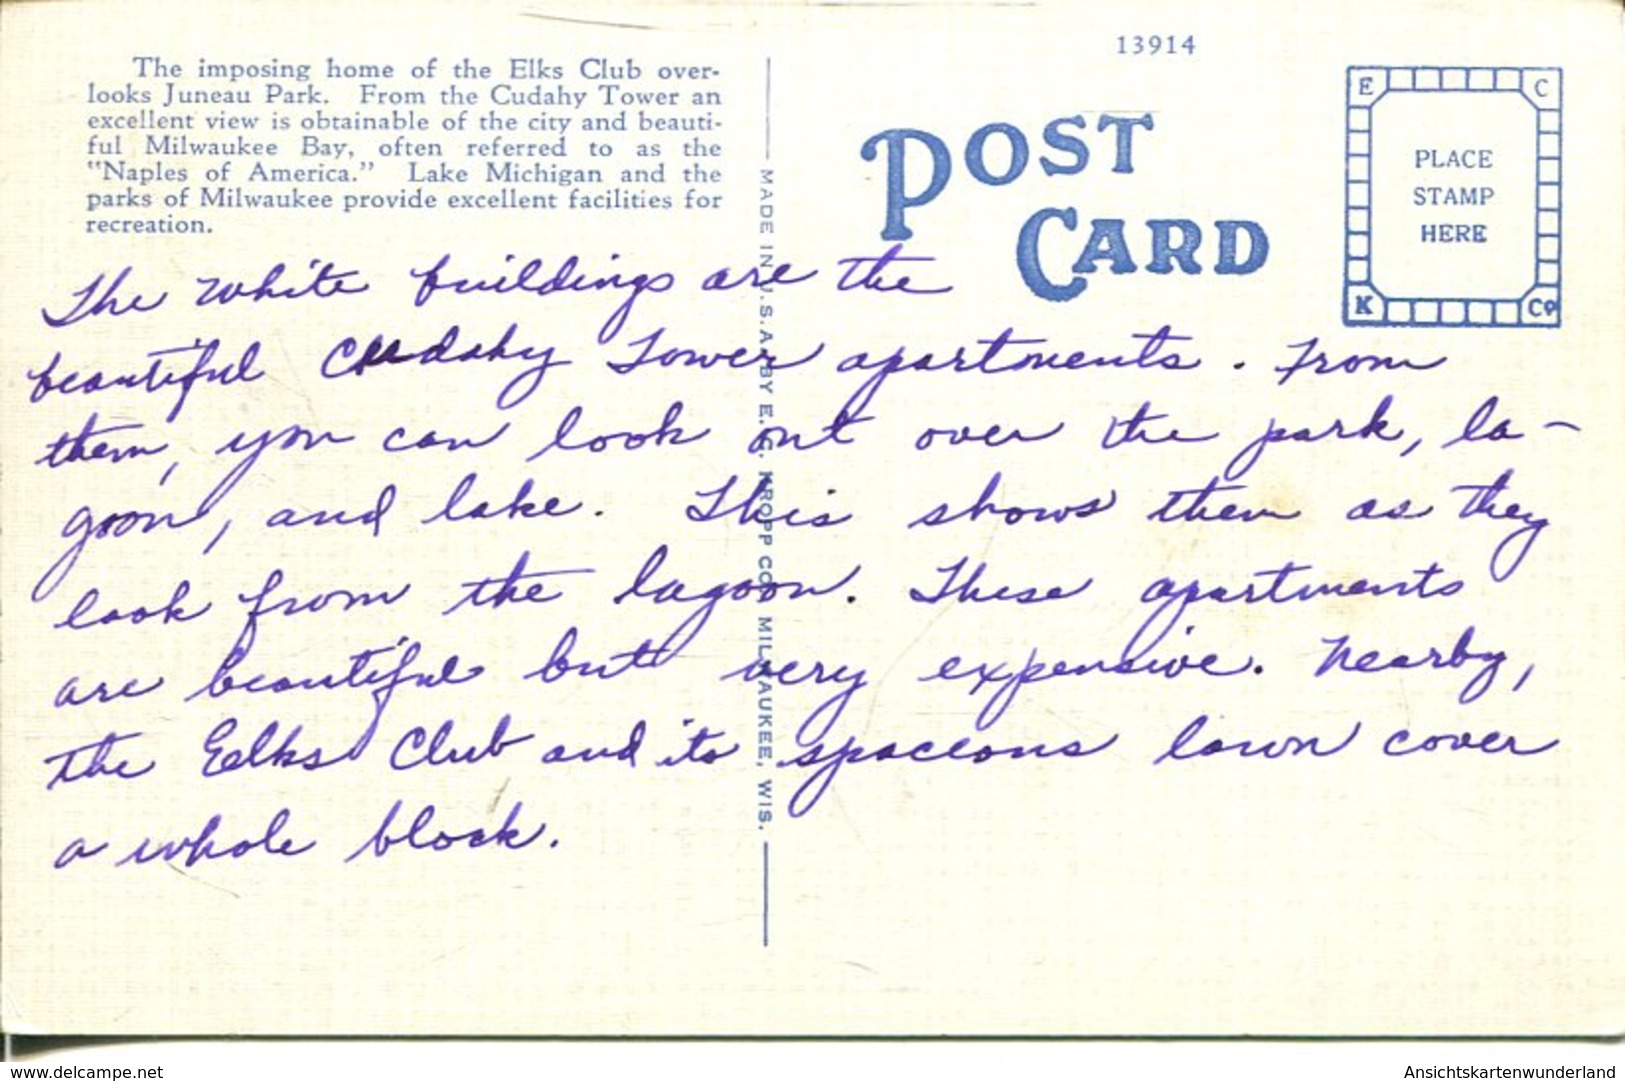 13914
The imposing home of the Elks Club over-
looks Juneau Park. From the Cudahy Tower an
excellent view is obtainable of the city and beauti-
ful Milwaukee Bay, often referred to as the
"Naples of America." Lake Michigan and the
parks of Milwaukee provide excellent facilities for
recreation.
POST
CARD
E C
PLACE
STAMP
HERE
K Co
MADE IN U.S.A. BY E. C. KROPP CO., MILWAUKEE, WIS.
The white buildings are the
beautiful Cudahy Tower apartments. From
them, you can look out over the park, la-
goon, and lake. This shows them as they
look from the lagoon. These apartments
are beautiful but very expensive. Nearby,
the Elks Club and its spaceous lawn cover
a whole block.
www.delcampe.net
Ansichtskartenwunderland